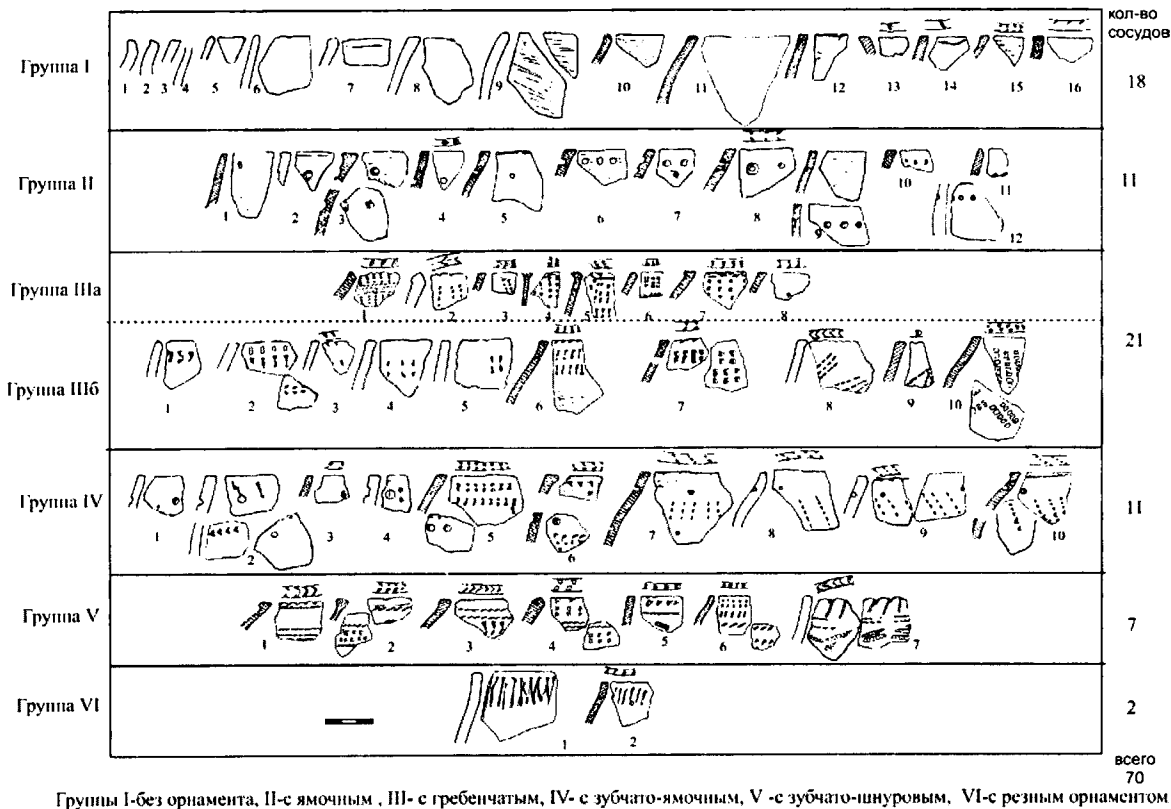 кол-во
сосудов
Группа I
1 2 3 4 5 6 7 8 9 10 11 12 13 14 15 16
18
Группа II
1 2 3 4 5 6 7 8 9 10 11 12
11
Группа IIIа
1 2 3 4 5 6 7 8
21
Группа IIIб
1 2 3 4 5 6 7 8 9 10
Группа IV
1 2 3 4 5 6 7 8 9 10
11
Группа V
1 2 3 4 5 6 7
7
Группа VI
1 2
2
всего
70
Группы I-без орнамента, II-с ямочным , III- с гребенчатым, IV- с зубчато-ямочным, V -с зубчато-шнуровым, VI-с резным орнаментом